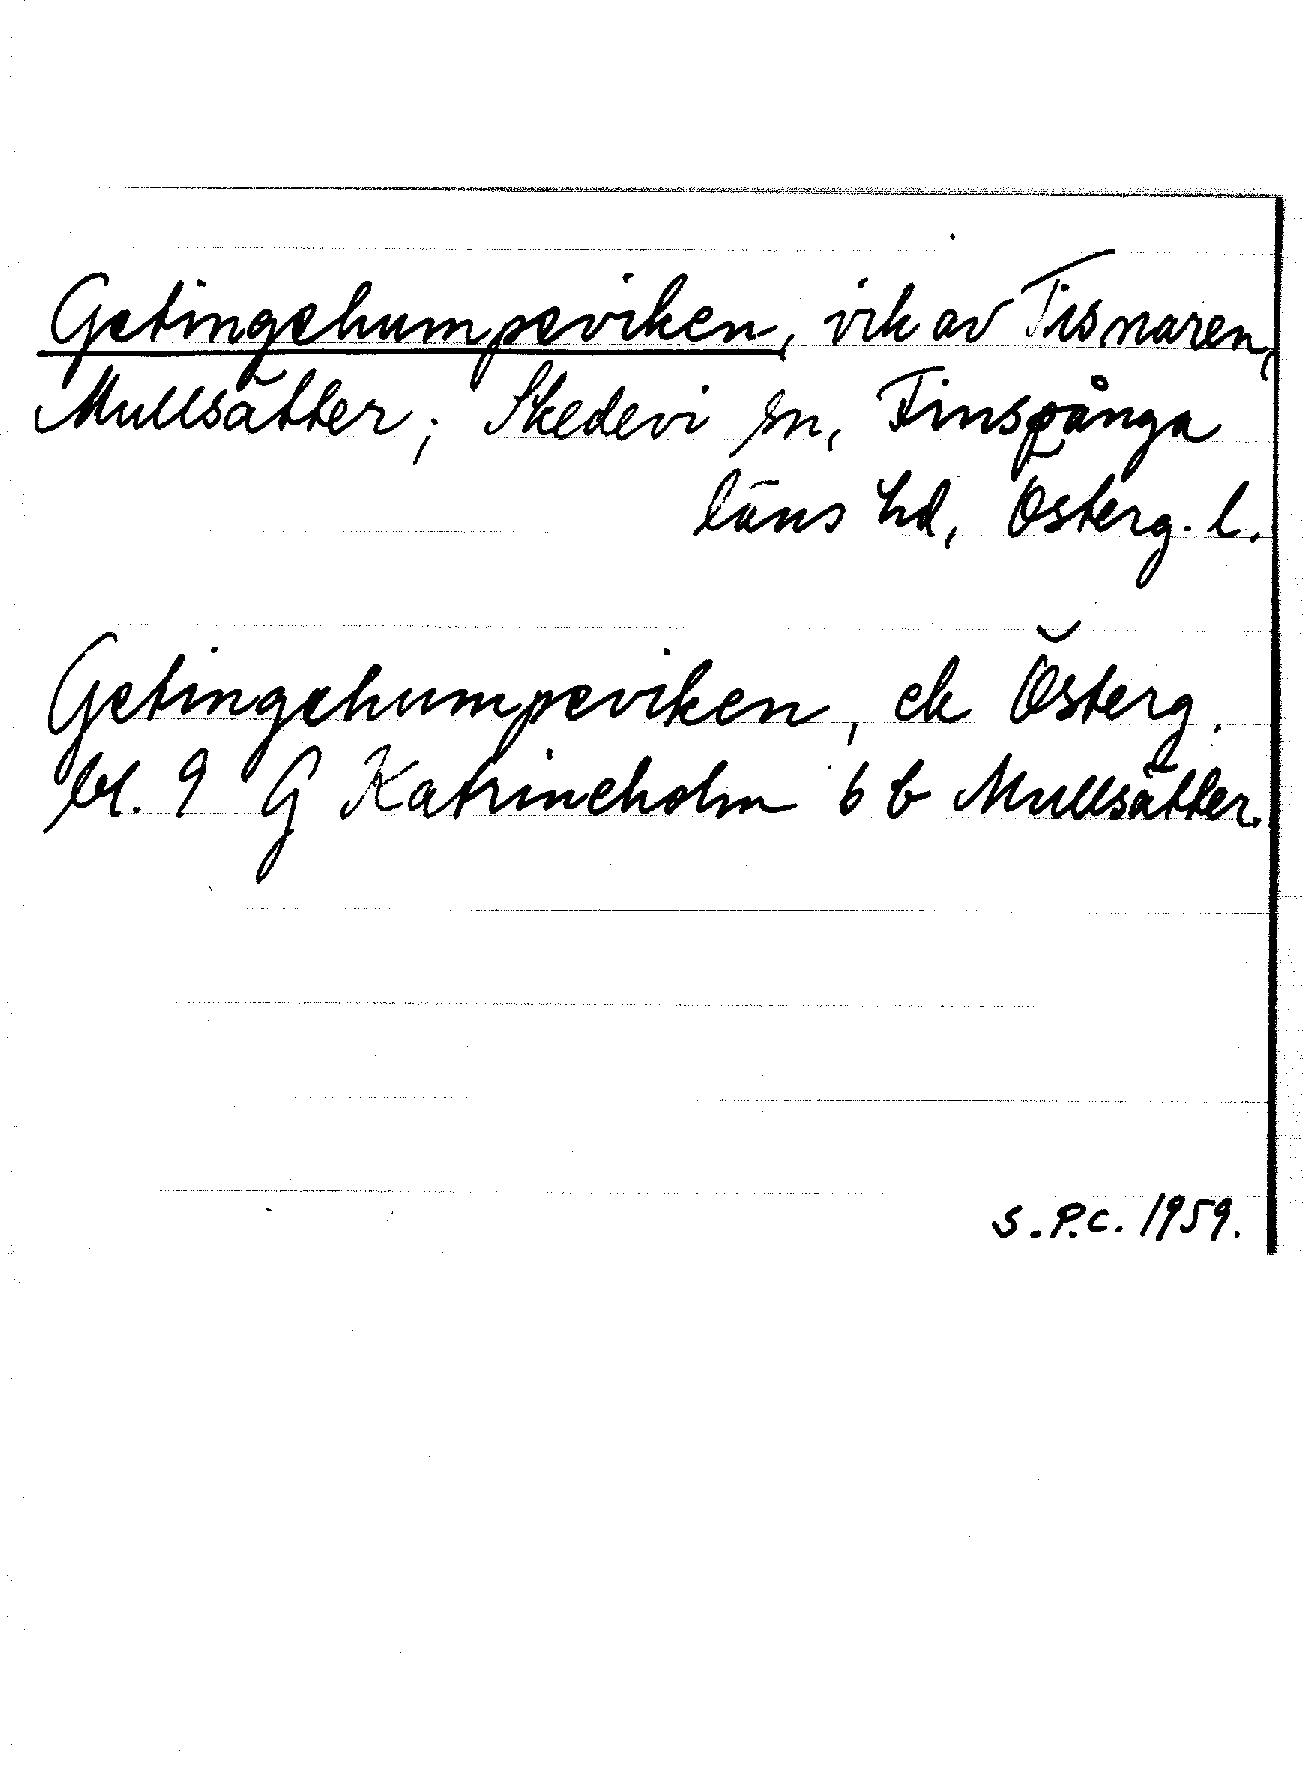 Getingehumpeviken, vik av Tisnaren,
Mullsätter; Skedevi sn, Finspånga
läns hd, Österg. l.
Getingehumpeviken, ek Österg.
bl. 9 G Katrineholm 6 b Mullsätter.
S.P.C. 1959.